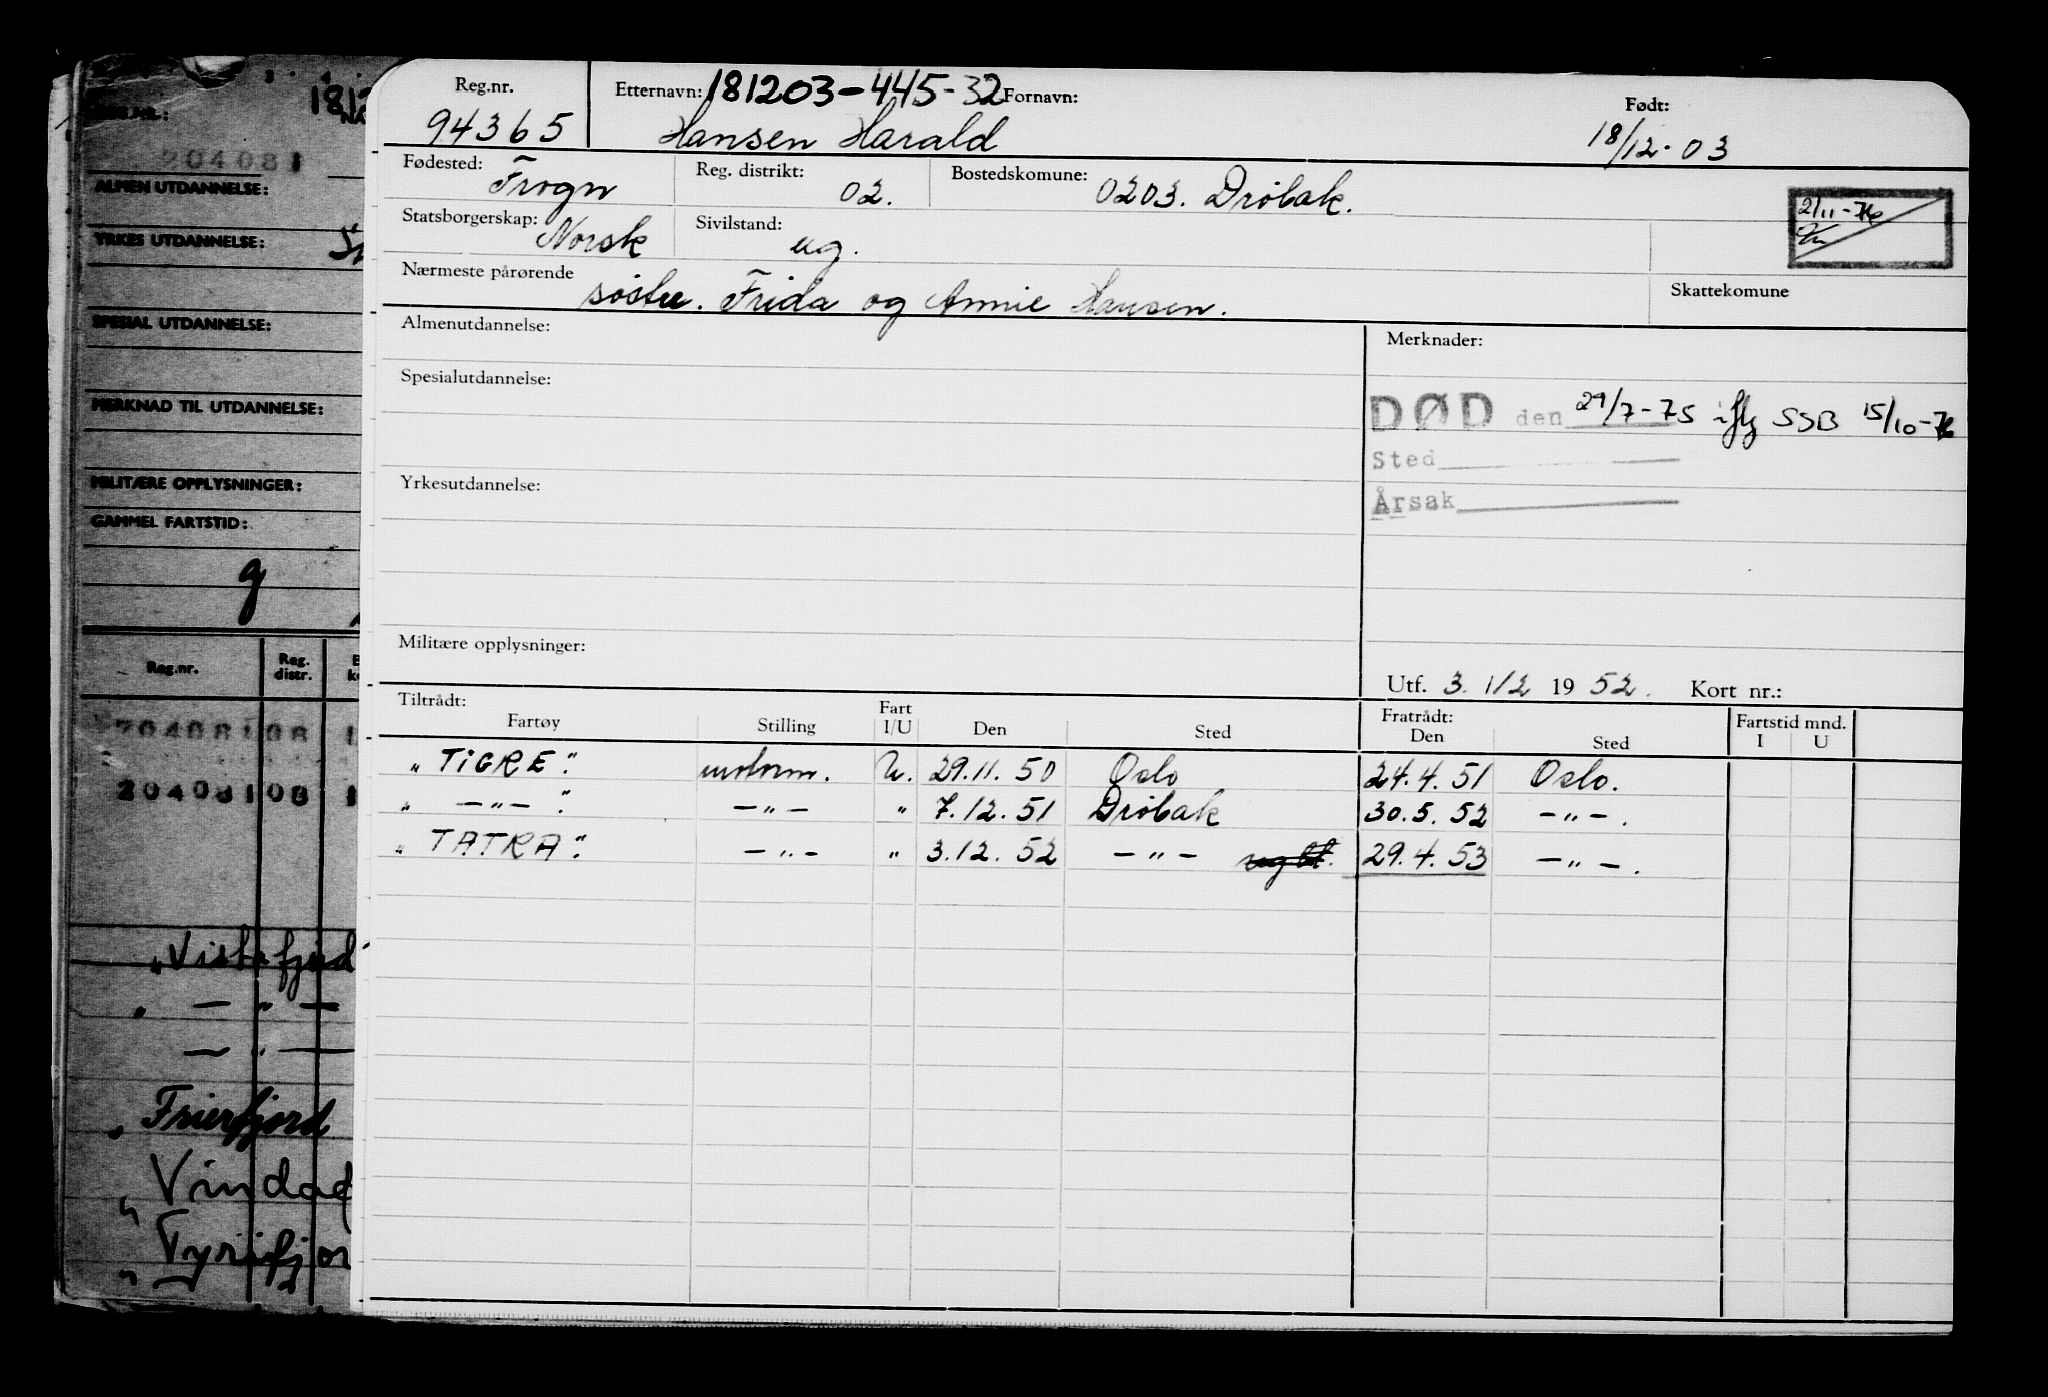 Reg.nr. Etternavn: 181203-445-32 Fornavn: Født:
94365 Hansen Harald 18/12-03
Fødested: Frogn Reg. distrikt: 02. Bostedskomune: 0203. Drøbak.
Statsborgerskap: Norsk Sivilstand: ug. 2/11-76
Nærmeste pårørende søstre. Frida og Annie Hansen. Skattekomune
Almenutdannelse: Merknader:
Spesialutdannelse:
DØD den 29/7-75 iflg SSB 15/10-76
Sted
Årsak
Yrkesutdannelse:
Militære opplysninger:
Utf. 3. 1/2 19 52. Kort nr.:
Tiltrådt: Fart Fratrådt: Fartstid mnd.
Fartøy Stilling I/U Den Sted Den Sted I U
"TIGRE" motorm. U. 29.11.50 Oslo 24.4.51 Oslo.
" —"— " —"— " 7.12.51 Drøbak 30.5.52 —"—.
"TATRA" —"— " 3.12.52 —"— 29.4.53 —"—.
1812
REG.NR.: NA
204081
ALMEN UTDANNELSE:
YRKES UTDANNELSE:
SPESIAL UTDANNELSE:
MERKNAD TIL UTDANNELSE:
MILITÆRE OPPLYSNINGER:
GAMMEL FARTSTID:
g
Reg.nr. Reg. distr.
204081 08 1
204081 08 1
" — " —
— " —
" Frierfjord
" Vindad
" Tyrifjor